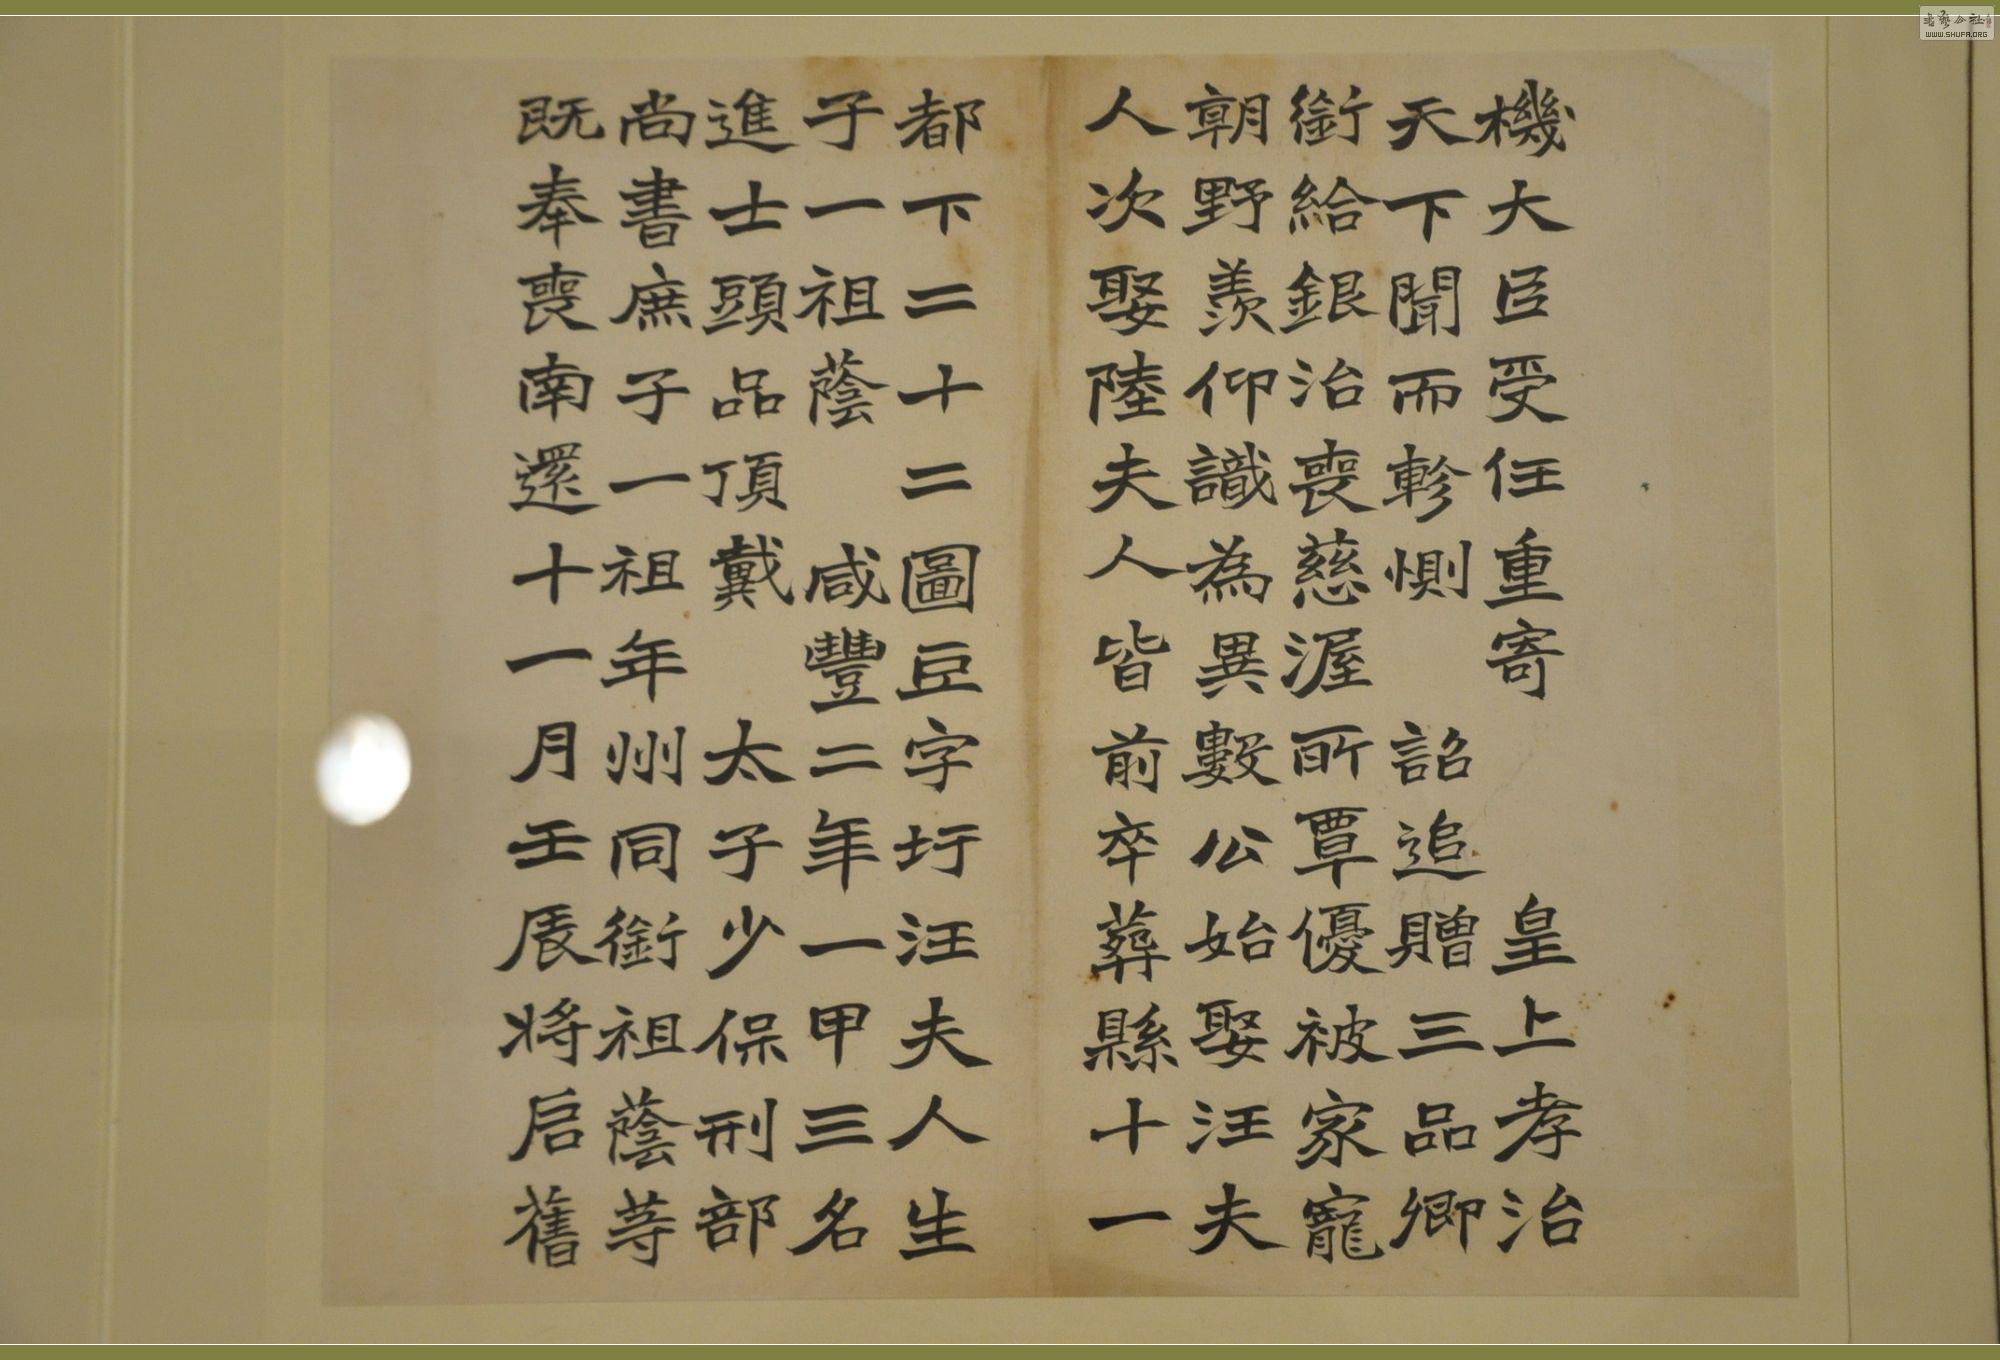 機大臣受任重寄皇上孝治
天下聞而軫惻詔追贈三品卿
銜給銀治喪慈渥所覃優被家寵
朝野羨仰識為異數公始娶汪夫
人次娶陸夫人皆前卒葬縣十一
都下二十二圖巨字圩汪夫人生
子一祖蔭咸豐二年一甲三名
進士頭品頂戴太子少保刑部
尚書庶子一祖年州同銜祖蔭等
既奉喪南還十一月壬辰將启舊
WWW.SHUFA.ORG